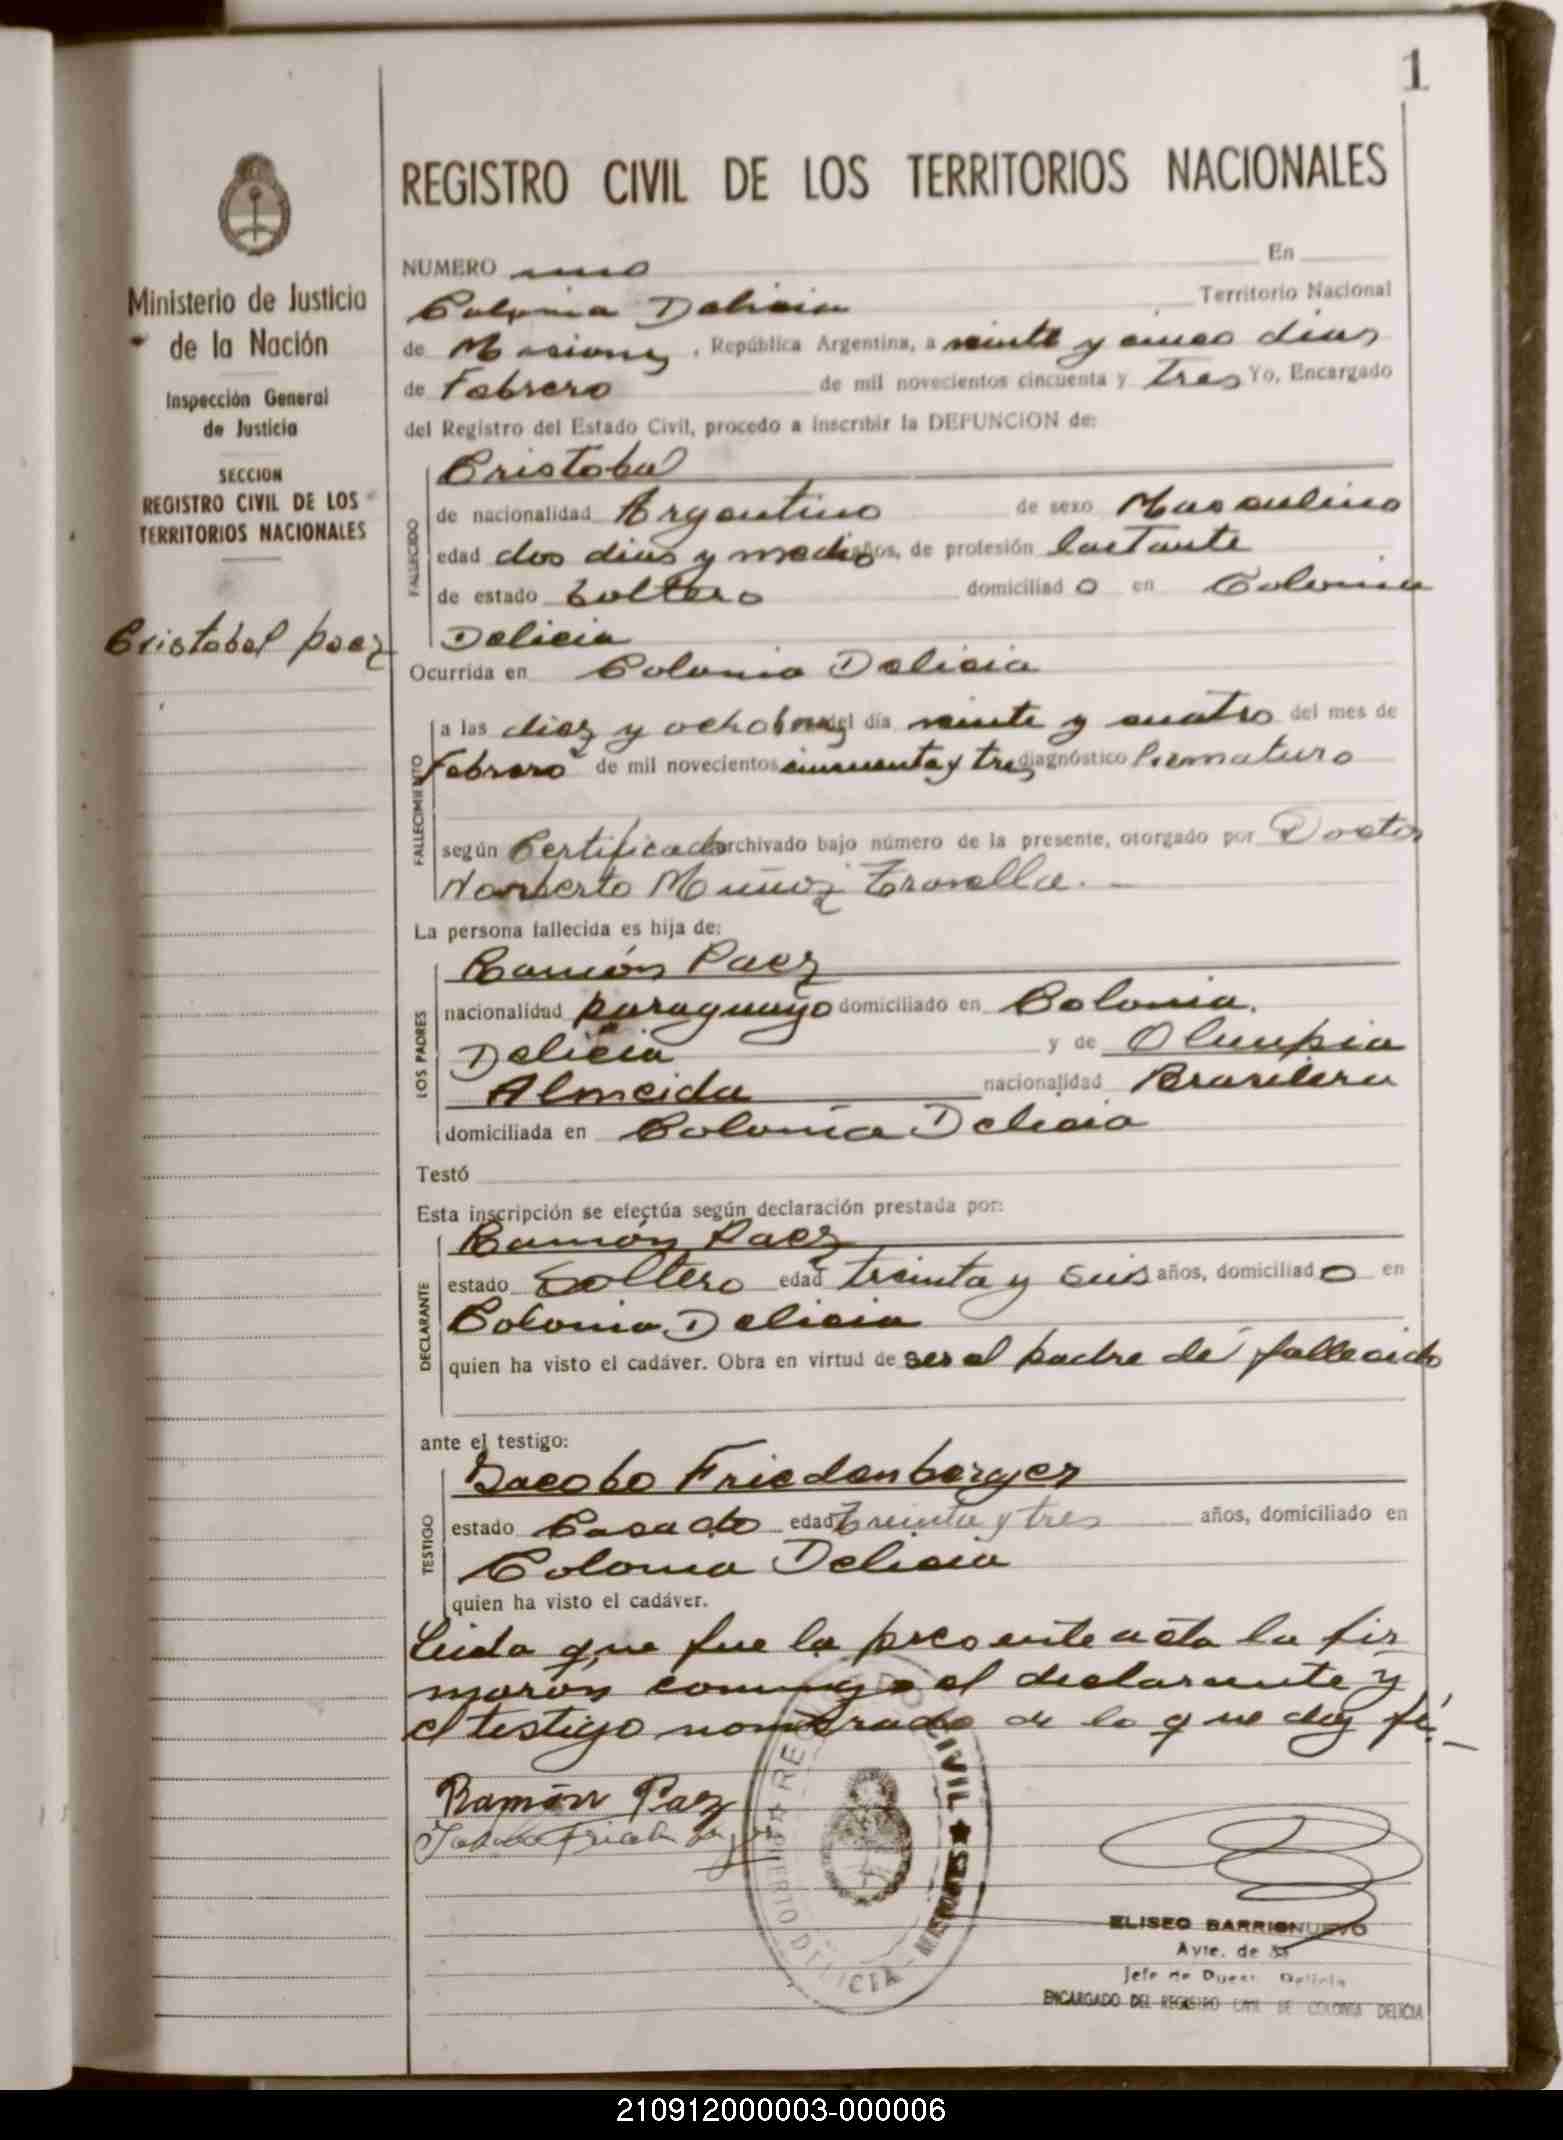 1
REGISTRO CIVIL DE LOS TERRITORIOS NACIONALES
Ministerio de Justicia
de la Nación
Inspección General
de Justicia
SECCION
REGISTRO CIVIL DE LOS
TERRITORIOS NACIONALES
Cristobal paez
NUMERO uno En
Colonia Delicia Territorio Nacional
de Misiones, República Argentina, a veinte y cinco dias
de Febrero de mil novecientos cincuenta y Tres Yo, Encargado
del Registro del Estado Civil, procedo a inscribir la DEFUNCION de:
FALLECIDO
Cristobal
de nacionalidad Argentino de sexo Masculino
edad dos dias y medio años, de profesión lactante
de estado Soltero domiciliado en Colonia
Delicia
Ocurrida en Colonia Delicia
FALLECIMIENTO
a las diez y ocho horas del día veinte y cuatro del mes de
Febrero de mil novecientos cincuenta y tres diagnóstico Prematuro
según Certificado archivado bajo número de la presente, otorgado por Doctor
Norberto Muñoz
La persona fallecida es hija de:
LOS PADRES
Ramón Paez
nacionalidad paraguayo domiciliado en Colonia.
Delicia y de Olimpia
Almeida nacionalidad Brasilera
domiciliada en Colonia Delicia
Testó
Esta inscripción se efectúa según declaración prestada por:
DECLARANTE
Ramón Paez
estado Soltero edad treinta y seis años, domiciliado en
Colonia Delicia
quien ha visto el cadáver. Obra en virtud de ser el padre de fallecido
ante el testigo:
TESTIGO
Jacobo Friedenberger
estado Casado edad Treinta y tres años, domiciliado en
Colonia Delicia
quien ha visto el cadáver.
Leida que fue la presente acta la fir
maron conmigo el declarante y
el testigo nombrado de lo que doy fé.
Ramón Paez
REGISTRO CIVIL ★ MISIONES
PUERTO DELICIA
ELISEO BARRIONUEVO
Jefe de Dest. Delicia
ENCARGADO DEL REGISTRO CIVIL DE COLONIA DELICIA
210912000003-000006